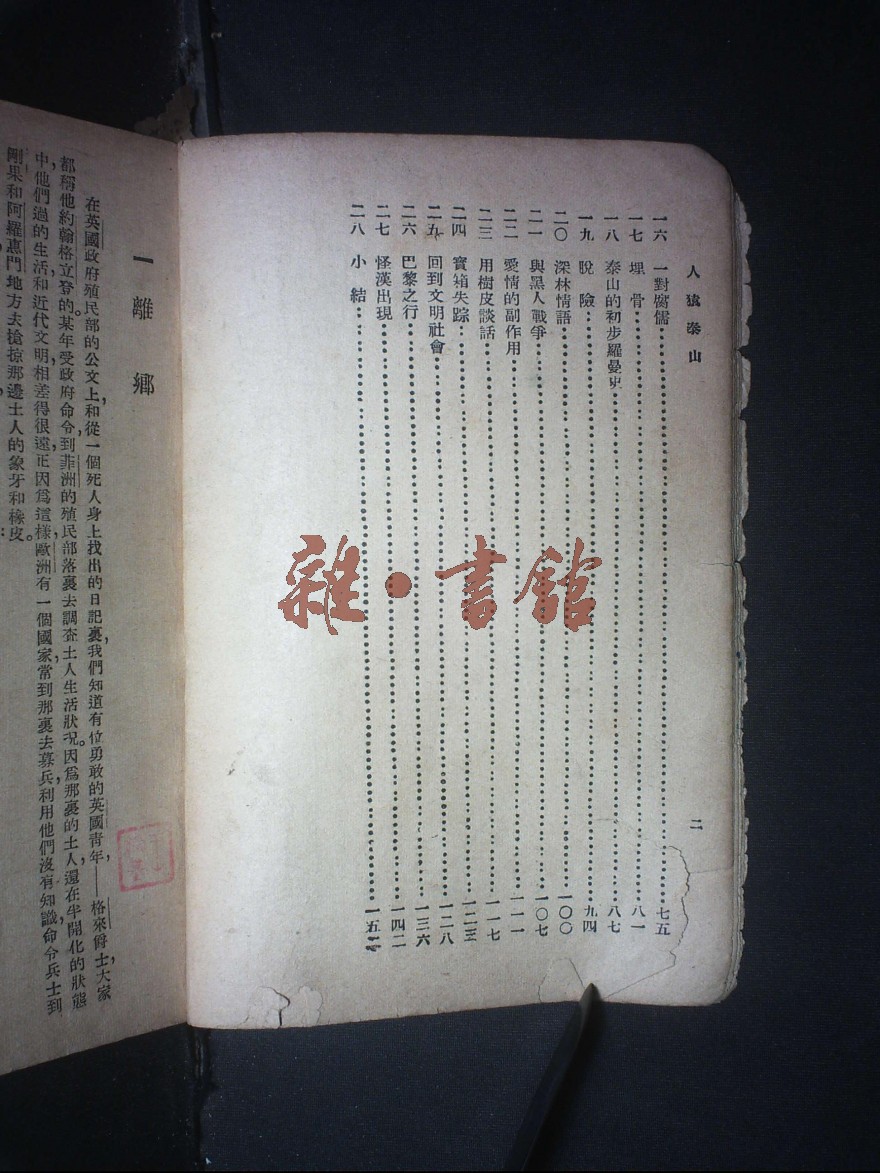 人猿泰山
二
一六 一對腐儒 七五
一七 埋骨 八一
一八 泰山的初步羅曼史 八七
一九 脫險 九四
二〇 深林情語 一〇〇
二一 與黑人戰爭 一〇七
二二 愛情的副作用 一一一
二三 用樹皮談話 一一七
二四 寶箱失踪 一二三
二五 回到文明社會 一二八
二六 巴黎之行 一三六
二七 怪漢出現 一四二
二八 小結 一五二
雜·書館
一 離鄉
在英國政府殖民部的公文上，和從一個死人身上找出的日記裏，我們知道有位勇敢的英國青年，——格來爵士，大家
都稱他約翰格立登的。某年受政府命令，到菲洲的殖民部落裏去調查土人生活狀況。因爲那裏的土人，還在半開化的狀態
中，他們過的生活和近代文明相差得很遠，正因爲這樣，歐洲有一個國家常到那裏去募兵，利用他們沒有知識，命令兵士到
剛果和阿羅惠門地方去搶掠那邊土人的象牙和橡皮。